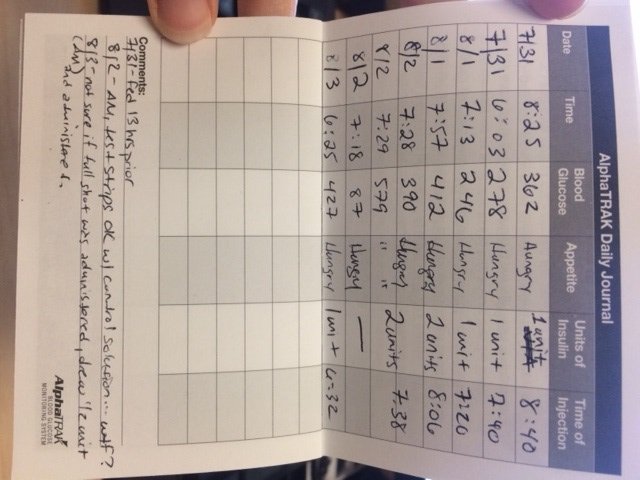 AlphaTRAK Daily Journal
Date Time Blood Glucose Appetite Units of Insulin Time of Injection
7/31 8:25 362 Hungry 1 unit 8:40
7/31 6:03 278 Hungry 1 unit 7:40
8/1 7:13 246 Hungry 1 unit 7:20
8/1 7:57 412 Hungry 2 units 8:06
8/2 7:28 390 Hungry
8/2 7:29 579 " " 2 units 7:38
8/2 7:18 87 Hungry —
8/3 6:25 427 Hungry 1 unit 6:32
Comments:
7/31-Fed 13 hrs prior
8/2 - AM, test strips OK w/ control solution... wtf?
8/3 - not sure if full shot was administered, drew unit
(AM) and administered.
AlphaTRAK
BLOOD GLUCOSE
MONITORING SYSTEM